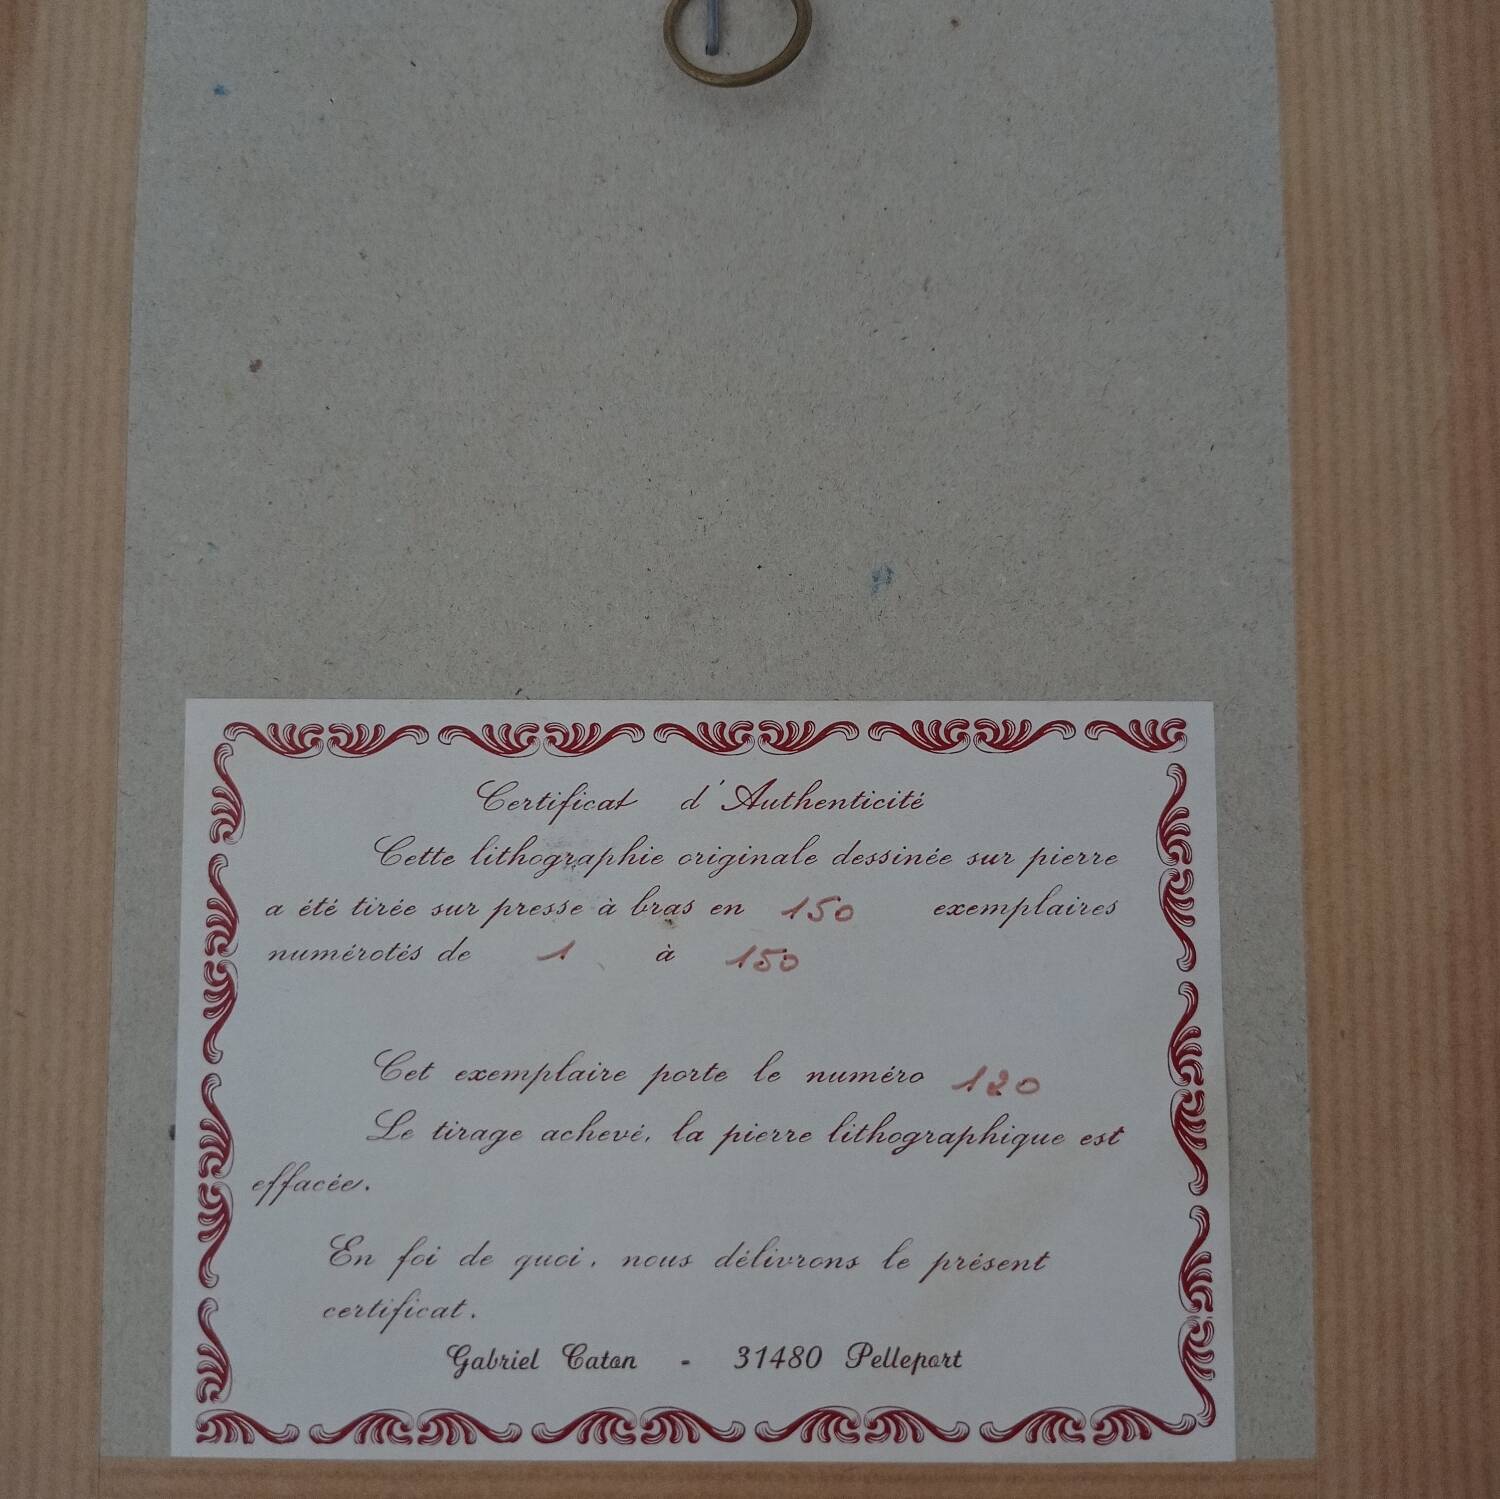 Certificat d'Authenticité
Cette lithographie originale dessinée sur pierre
a été tirée sur presse à bras en 150 exemplaires
numérotés de 1 à 150
Cet exemplaire porte le numéro 120
Le tirage achevé, la pierre lithographique est
effacée.
En foi de quoi, nous délivrons le présent
certificat.
Gabriel Catan - 31480 Pelleport